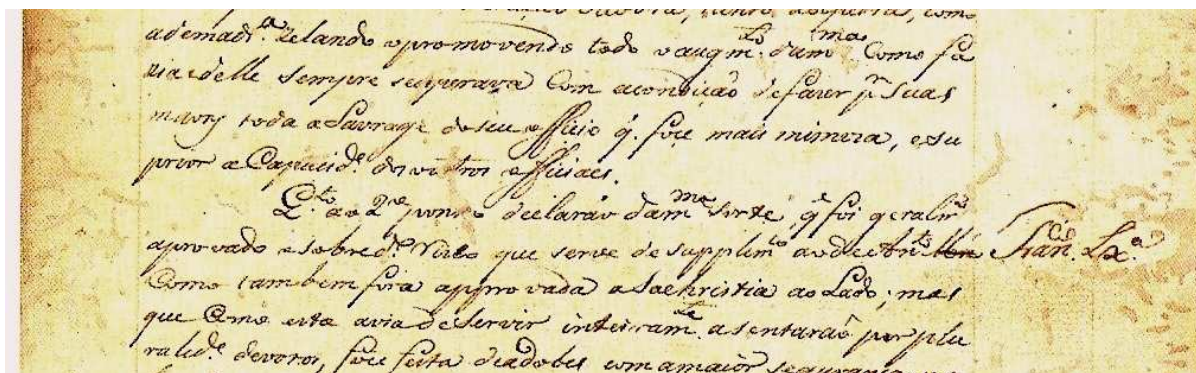 ademad.ª Zelando e promovendo todo o augm.to dam.ma Como fa
ria e delle sempre se esperava Com acondição de fazer p.r Suas
maons toda a Lavrage do seu officio q. foce mais mimoza, esu
prior a Capacid.e dos outros officiaes.
Q.to ao 2.º ponto declararão dam.ma sorte, q.e foi geralm.te
aprovado o sobred.º Risco que serve de supplim.to ao de Ant.to Fran.co Lx.ª
Como tambem fora approvada a Sachristia ao Lado; mas
que Como esta avia de servir inteiram.te asentarão por plu
ralid.e devotos, foce feita de adobes com amaior segurança